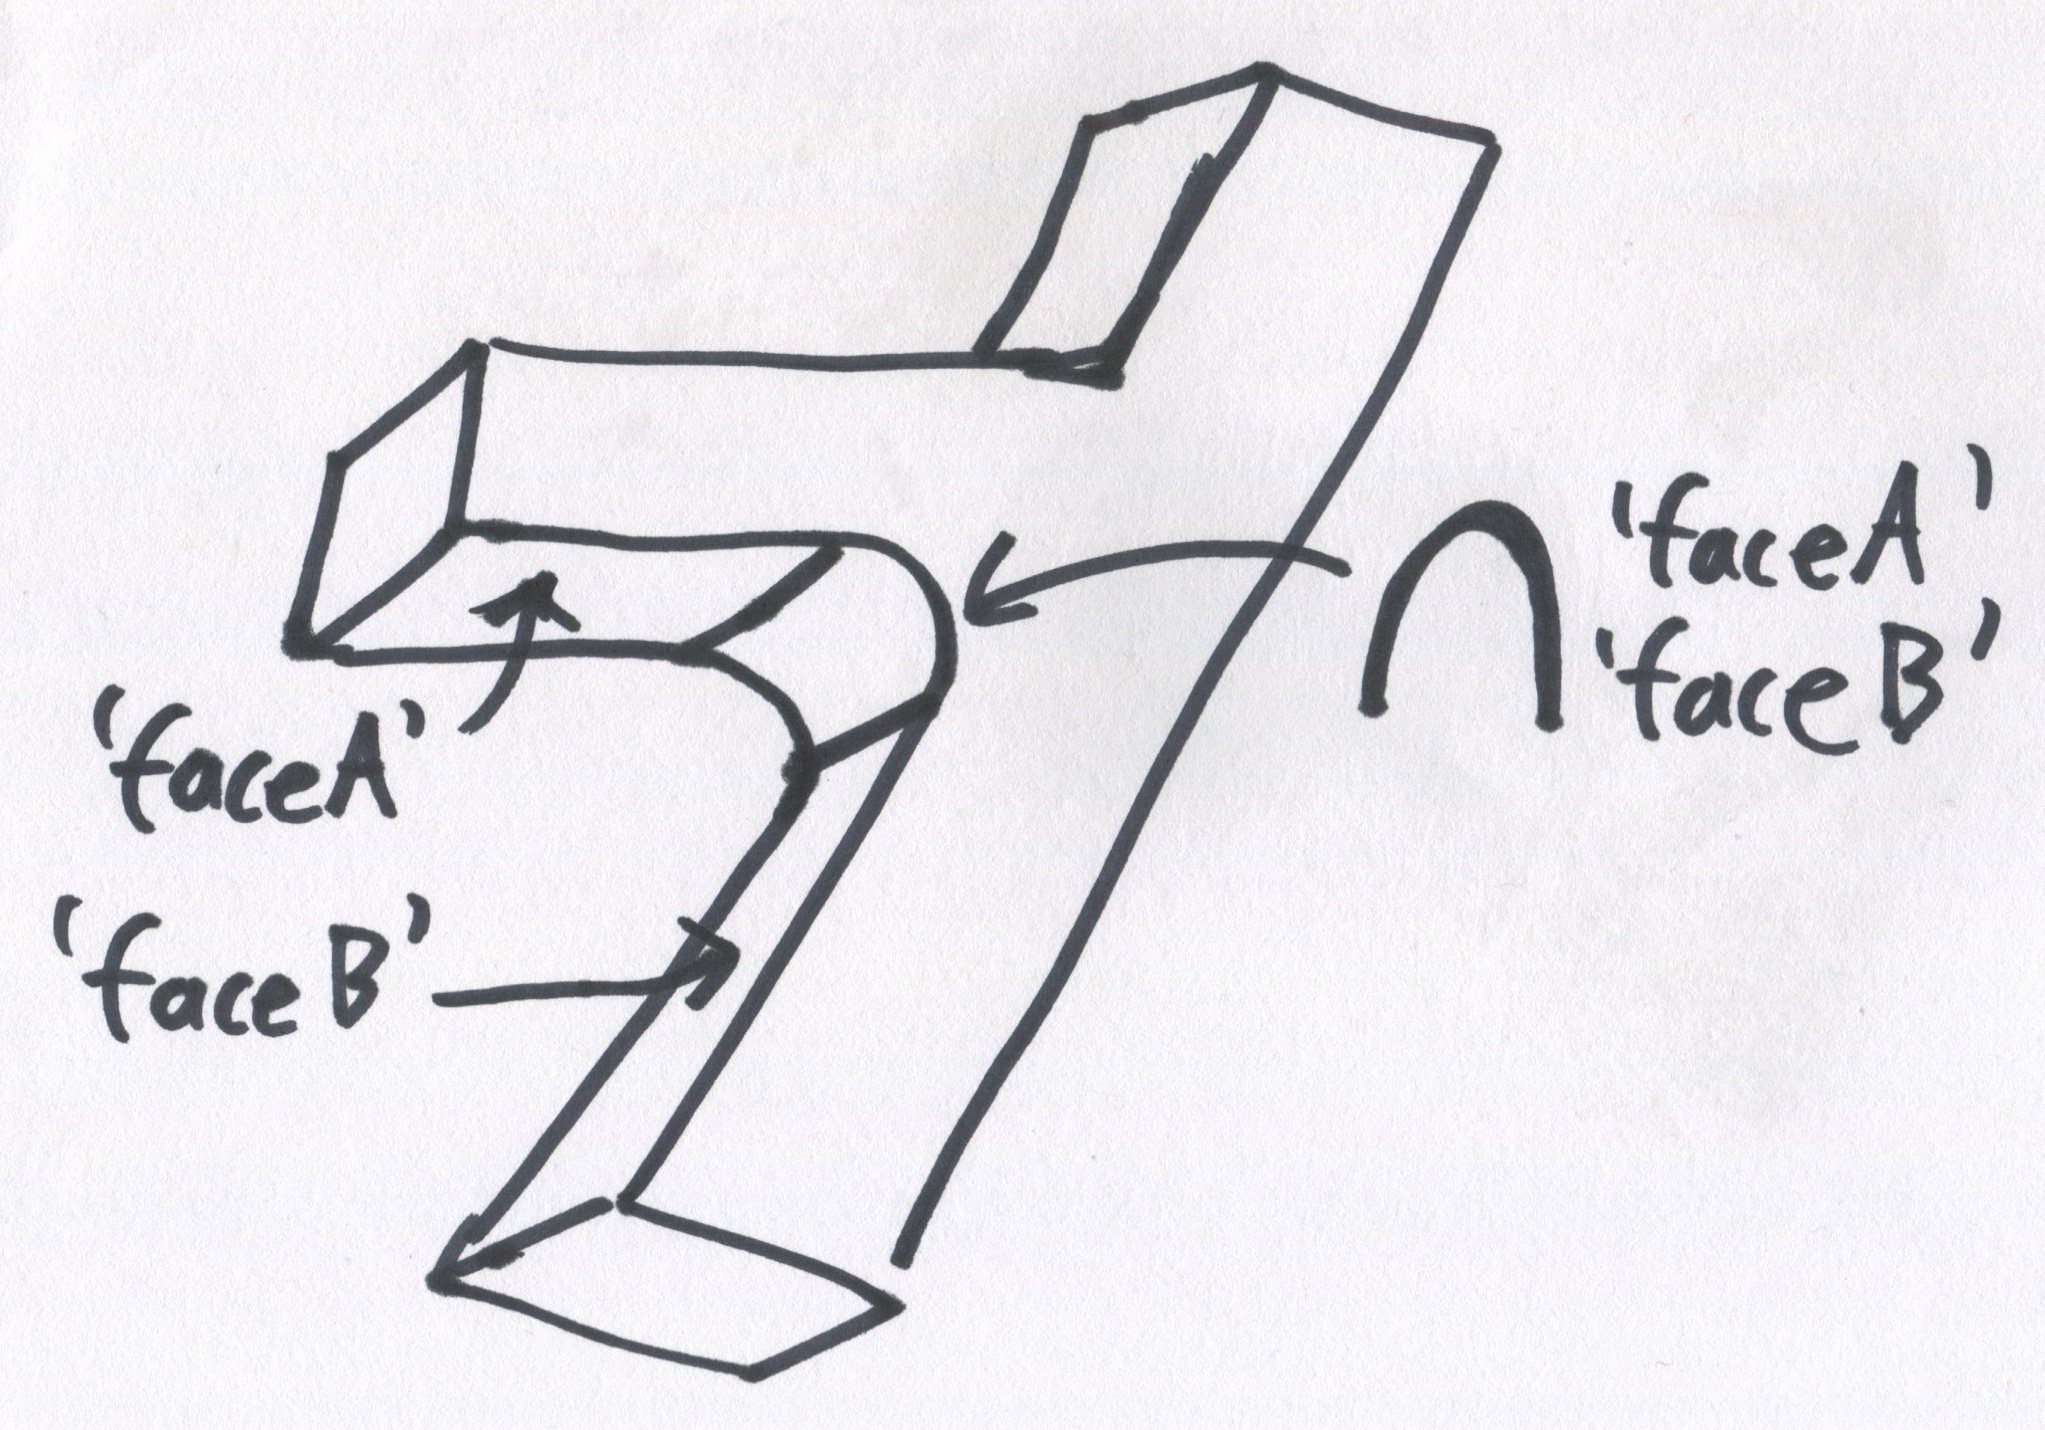 'faceA'
'faceB'
∩ 'faceA'
'faceB'